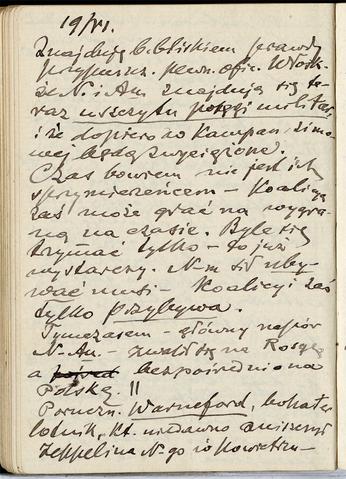 19/VI.
Znajduję b. bliskiem prawdy
przypuszcz. pewn. ofic. Włosk.
że N. i Au. znajdują się te-
raz u szczytu potęgi militar.
i że dopiero w kampan. zimo-
wej będą zwyciężone.
Czas bowiem nie jest ich
sprzymierzeńcem — Koalicya
zaś może grać na wygra-
ną na czasie. Byle się
trzymać tylko — to już
wystarczy. N-m sił uby-
wać musi — Koalicyi zaś
tylko przybywa.
Tymczasem — główny napór
N.-Au. — zwalił się na Rosyę
a bezpośrednio na
Polskę. !!
Poruczn. Warneford, bohater
lotnik, kt. niedawno zniszczył
Zeppelina N-go w powietrzu —